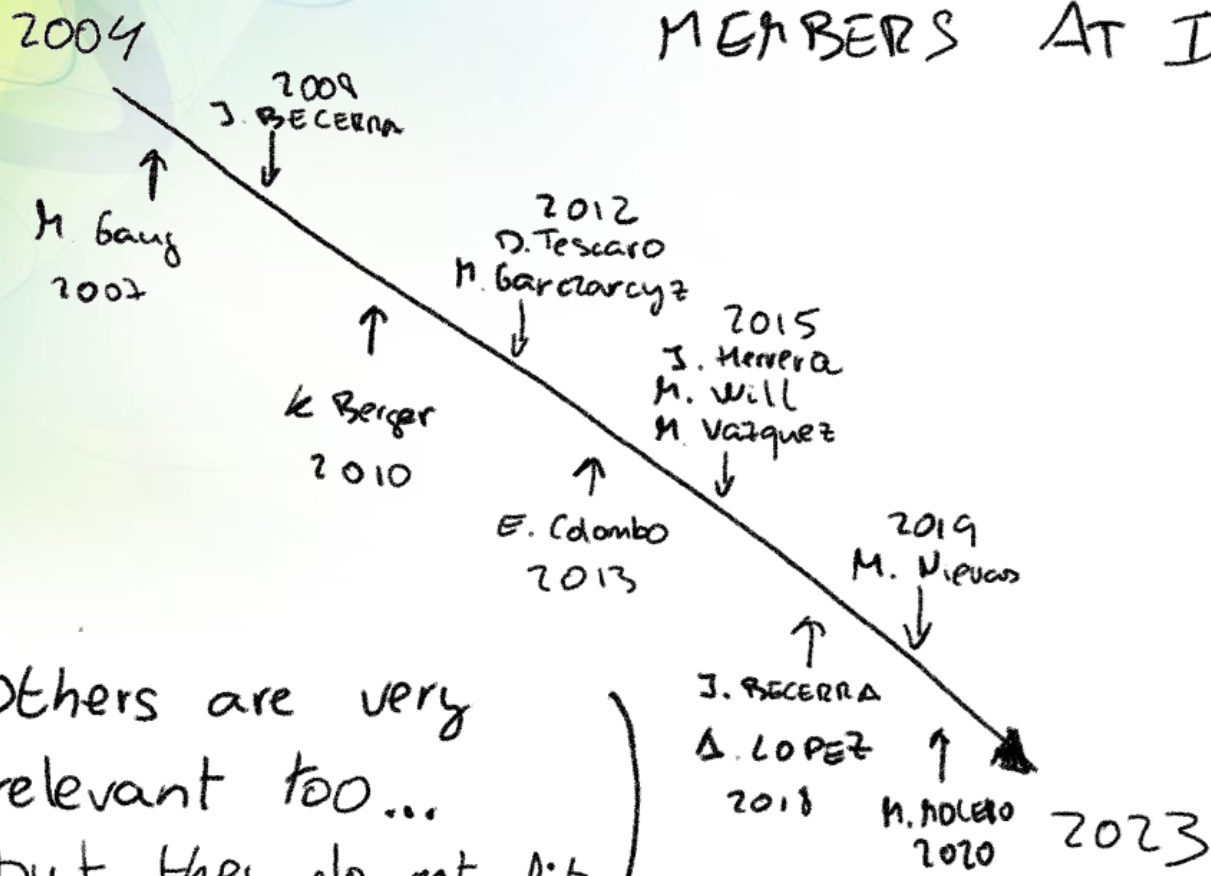 2004
MEMBERS AT I
2009
J. BECERRA
M. Gaug
2007
2012
D. Tescaro
M. Garczarcyz
K Berger
2010
2015
J. Herrera
M. Will
M. Vazquez
E. Colombo
2013
2019
M. Nievas
J. BECERRA
A. LOPEZ
2018
M. MOLERO
2020
2023
Others are very
relevant too...
but they do not fit